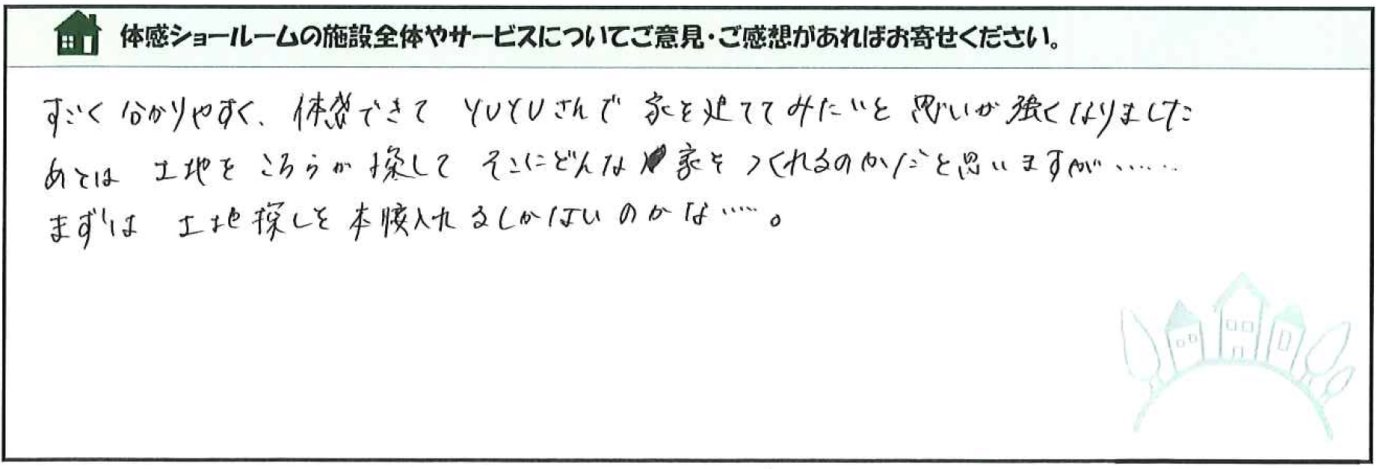 体感ショールームの施設全体やサービスについてご意見・ご感想があればお寄せください。
すごく分かりやすく、体感できて YUYUさんで 家を建ててみたいと 思いが強くなりました
あとは 土地を こちらが探して そこにどんな 家をつくれるのかだと思いますが……
まずは 土地探しを本腰入れるしかないのかな……。